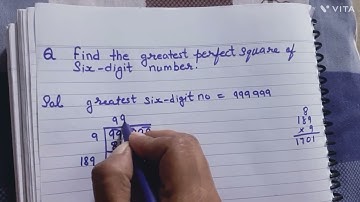 VITA
Q Find the greatest perfect square of
Six-digit number.
Sol greatest six-digit no = 999999
99
9 99
189
8
189
× 9
1701